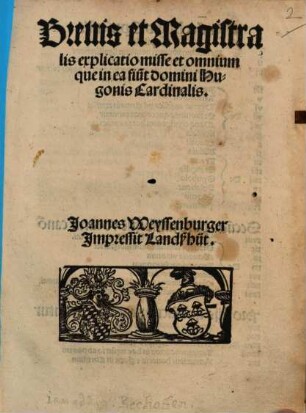 Brevis et Magistra
lis explicatio misse et omnium
que in ea fiūt Domini Hu-
gonis Cardinalis.
Joannes Weyssenburger
Impressit Landszhůt.
2